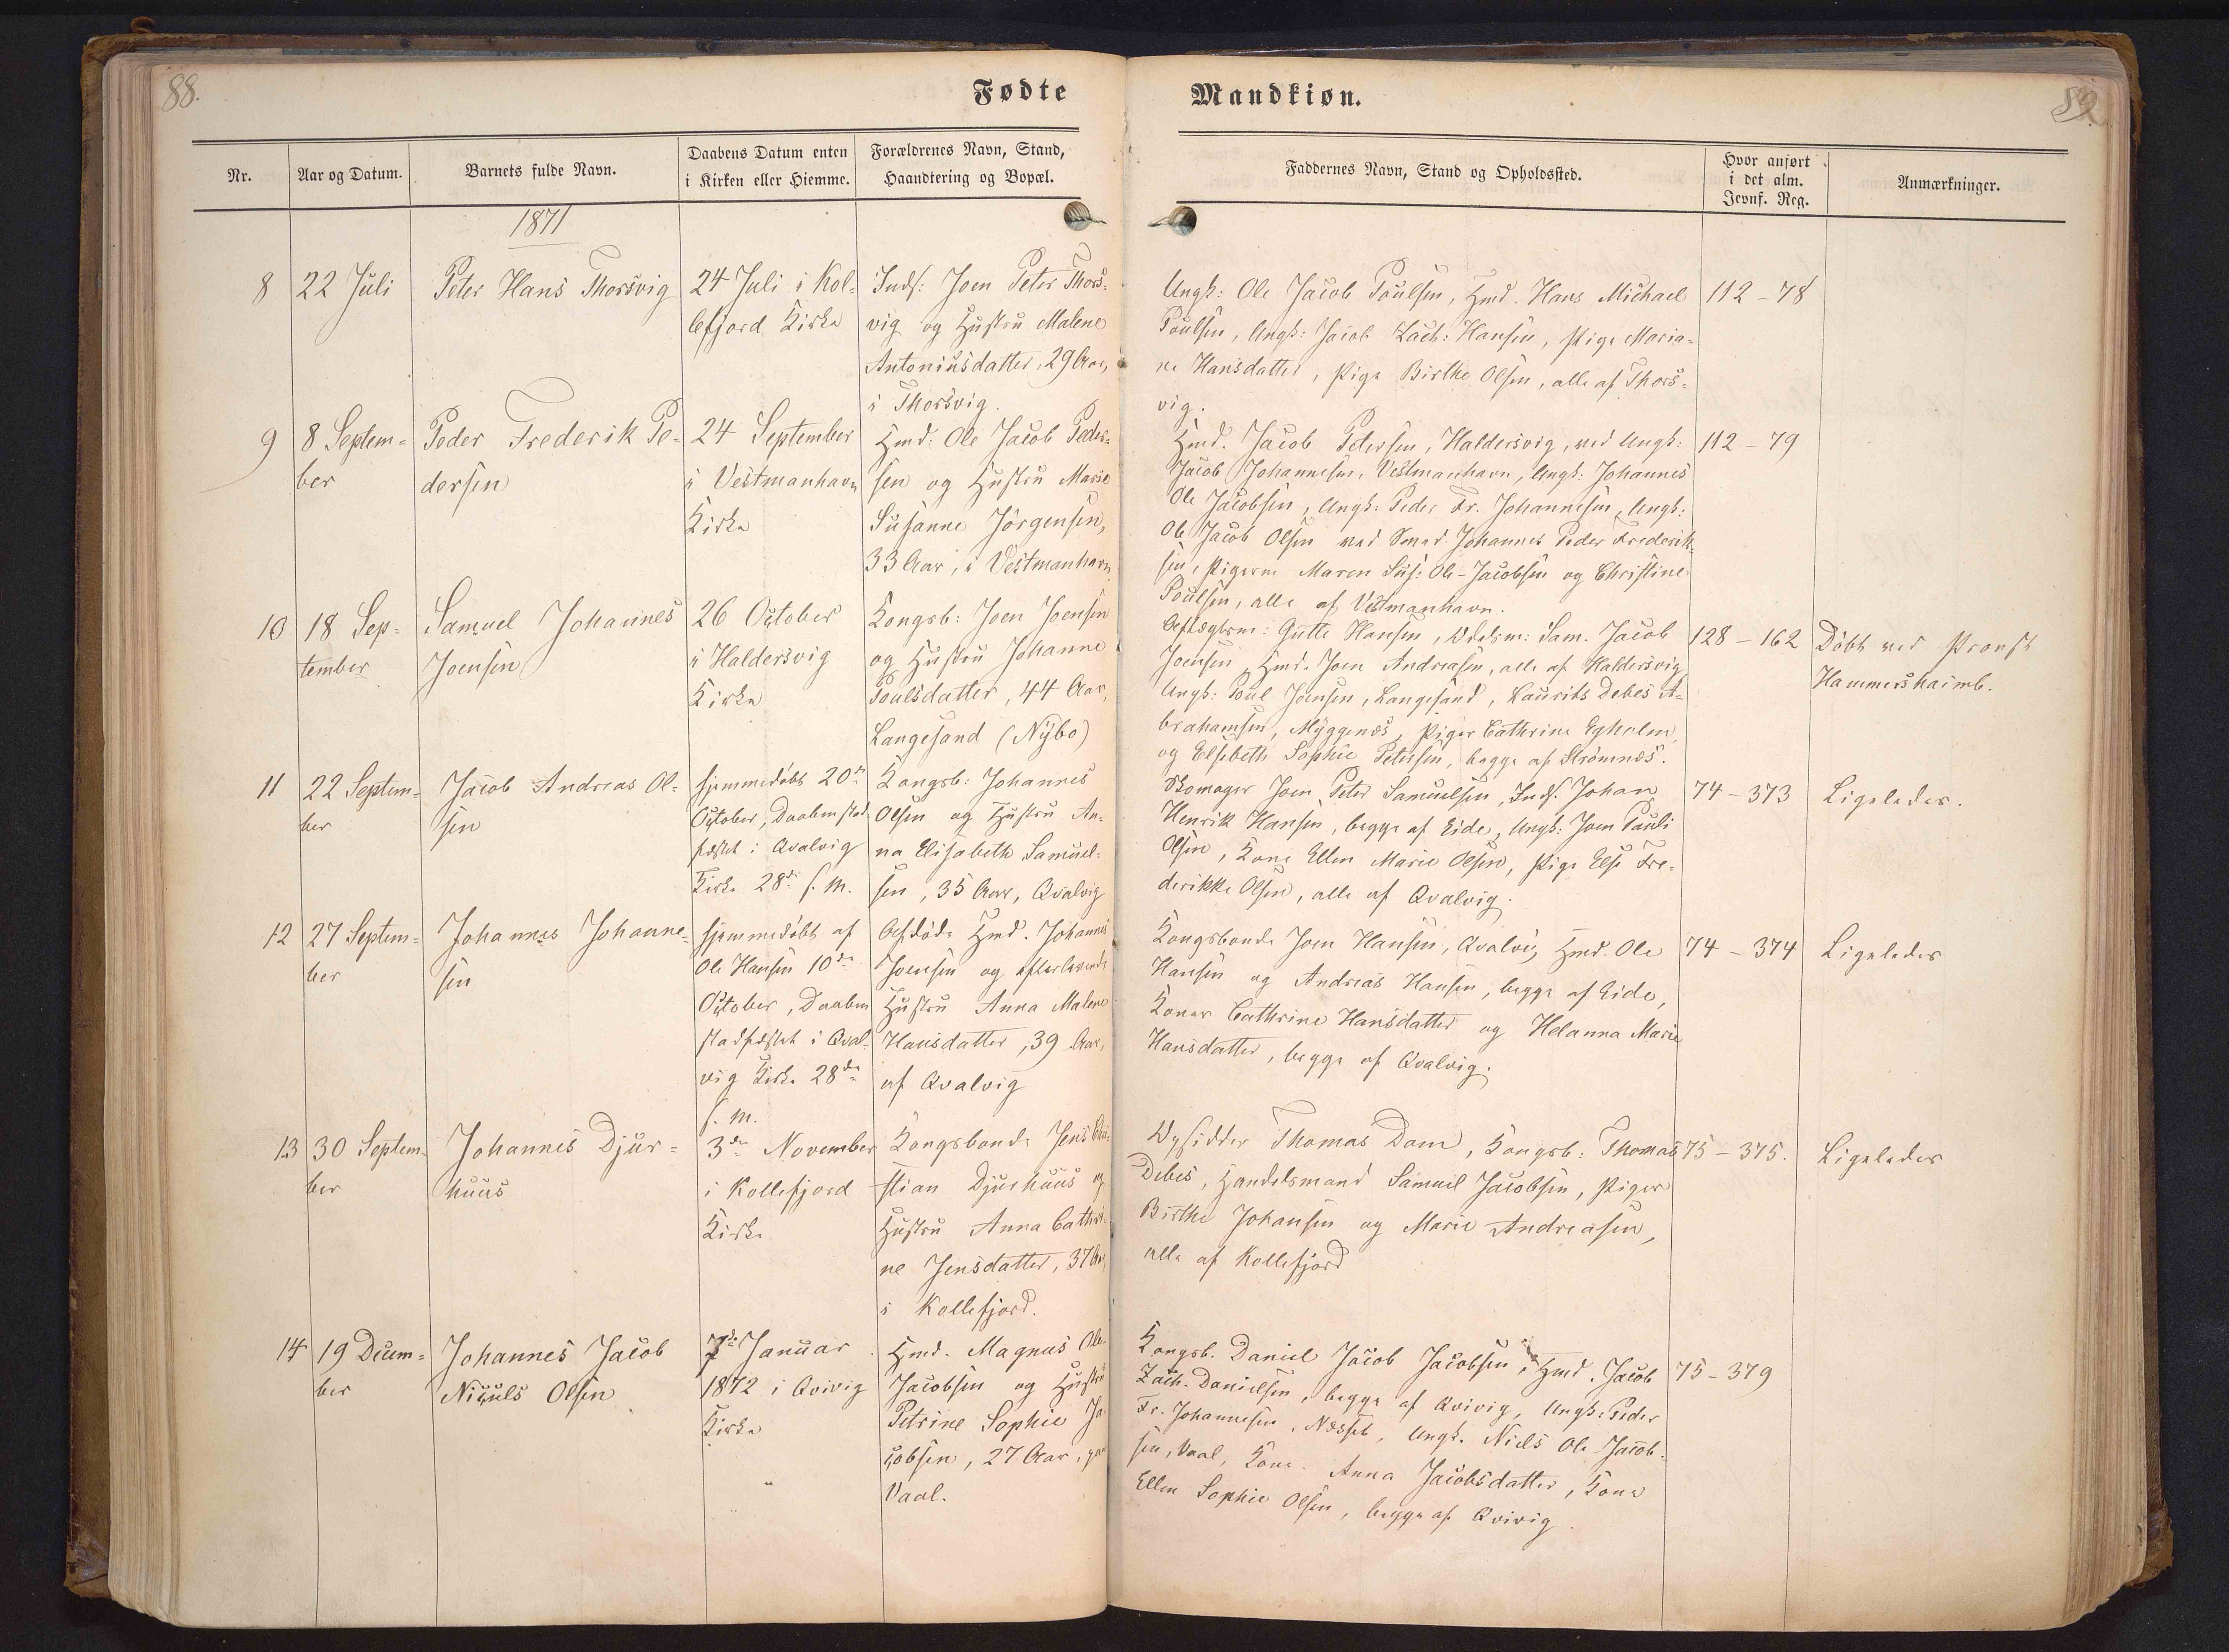 88.
Fødte
Nr.
Aar og Datum.
Barnets fulde Navn.
Daabens Datum enten
i Kirken eller Hiemme.
Forældrenes Navn, Stand,
Haandtering og Bopæl.
1871
8
22 Juli
Peter Hans Thorsvig
24 Juli i Kol-
lefjord Kirke
Inds: Joen Peter Thors-
vig og Hustru Malene
Antoniusdatter, 29 Aar,
i Thorsvig.
9
8 Septem-
ber
Peder Frederik Pe-
dersen
24 September
i Vestmanhavn
Kirke
Hmd: Ole Jacob Peder-
sen og Hustru Marie
Susanne Jörgensen,
33 Aar, i Vestmanhavn
10
18 Sep-
tember
Samuel Johannes
Joensen
26 October
i Haldersvig
Kirke
Kongsb: Joen Joensen
og Hustru Johanne
Poulsdatter, 44 Aar,
Langesand (Nÿbo)
11
22 Septem-
ber
Jacob Andreas Ol-
sen
hjemmedöbt 20de
October, Daaben stad-
fæstet i Qvalvig
Kirke 28de s. M.
Kongsb: Johannes
Olsen og Hustru An-
na Elisabeth Samuel-
sen, 35 Aar, Qvalvig
12
27 Septem-
ber
Johannes Johanne-
sen
hjemmedöbt af
Ole Hansen 10de
October, Daaben
stadfæstet i Qval-
vig Kirke 28de
s. M.
Afdöde Hmd. Johannes
Joensen og efterlevende
Hustru Anna Malene
Hansdatter, 39 Aar,
af Qvalvig
13
30 Septem-
ber
Johannes Djur-
huus
3de November
i Kollefjord
Kirke
Kongsbonde Jens Chri-
stian Djurhuus og
Hustru Anna Cathri-
ne Jensdatter, 37 Aar,
i Kollefjord.
14
19 Decem-
ber
Johannes Jacob
Niculs Olsen
7de Januar
1872 i Qvivig
Kirke
Hmd. Magnus Ole
Jacobsen og Hustru
Petrine Sophie Ja-
cobsen, 27 Aar, paa
Vaal.
Mandkiøn.
89
Faddernes Navn, Stand og Opholdssted.
Hvor anført
i det alm.
Jevnf. Reg.
Anmærkninger.
Ungk: Ole Jacob Poulsen, Hmd. Hans Michael
Poulsen, Ungk: Jacob Zach: Hansen, Pige Maria-
ne Hansdatter, Pige Birthe Olsen, alle af Thors-
vig.
112 – 78
Hmd. Jacob Petersen, Haldersvig, ved Ungk:
Jacob Johannesen, Vestmanhavn, Ungk: Johannes
Ole Jacobsen, Ungk: Peder Fr. Johannesen, Ungk:
Ole Jacob Olsen ved Smed Johannes Peder Frederik-
sen, Pigerne Maren Sus: Ole-Jacobsen og Christine
Poulsen, alle af Vestmanhavn.
112 – 79
Aftægtsm: Gutte Hansen, Odelsm: Sam. Jacob
Joensen, Hmd. Joen Andreasen, alle af Haldersvig
Ungk: Poul Joensen, Langesand, Laurits Debes A-
brahamsen, Myggenæs, Piger Cathrine Egholm,
og Elsebeth Sophie Petersen, begge af Strömnæs.
128 – 162
Döbt ved Provst
Hammershaimb.
Skomager Joen Peter Samuelsen, Inds. Johan
Henrik Hansen, begge af Eide, Ungk: Joen Pauli
Olsen, Kone Ellen Marie Olsen, Pige Else Fre-
derikke Olsen, alle af Qvalvig.
74 – 373
Ligeledes.
Kongsbonde Joen Hansen, Qvalvig, Hmd. Ole
Hansen og Andreas Hansen, begge af Eide,
Koner Cathrine Hansdatter og Helanna Marie
Hansdatter, begge af Qvalvig.
74 – 374
Ligeledes
Opsidder Thomas Dam, Kongsb: Thomas
Debes, Handelsmand Samuel Jacobsen, Piger
Birthe Johansen og Marie Andreasen,
alle af Kollefjord
75 – 375.
Ligeledes
Kongsb. Daniel Jacob Jacobsen, Hmd. Jacob
Zach. Danielsen, begge af Qvivig, Ungk: Peder
Fr. Johannesen, Næsset, Ungk. Niels Ole Jacob-
sen, Vaal, Kone Anna Jacobsdatter, Kone
Ellen Sophie Olsen, begge af Qvivig.
75 – 379